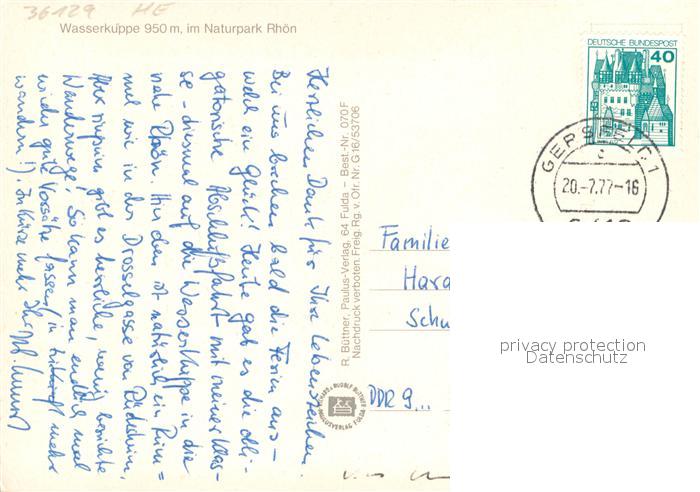 36129 HE
Wasserkuppe 950 m, im Naturpark Rhön
DEUTSCHE BUNDESPOST
40
GERSFELD 1
20.-7.77-16
Herzlichen Dank für Ihre Lebenszeichen.
Bei uns brechen bald die Ferien aus -
welch ein Glück! Heute gab es die obli-
gatorische Abschlußfahrt mit meiner Klas-
se - diesmal auf die Wasserkuppe in die
nahe Rhön. Hier oben ist natürlich ein Rum=
mel wie in der Drosselgasse von Rüdesheim,
Aber ringsum gibt es herrliche, wenig berührte
Wanderwege. So kann man endlich mal
wieder gute Vorsätze fassen (in Zukunft mehr
wandern!). In Kürze mehr Ihr
R. Büttner, Paulus-Verlag, 64 Fulda – Best.-Nr. 070 F
Nachdruck verboten. Freig. Rg. v. Ofr. Nr. G 16/53706
Familie
Hara
Schu
DDR 9...
privacy protection
Datenschutz